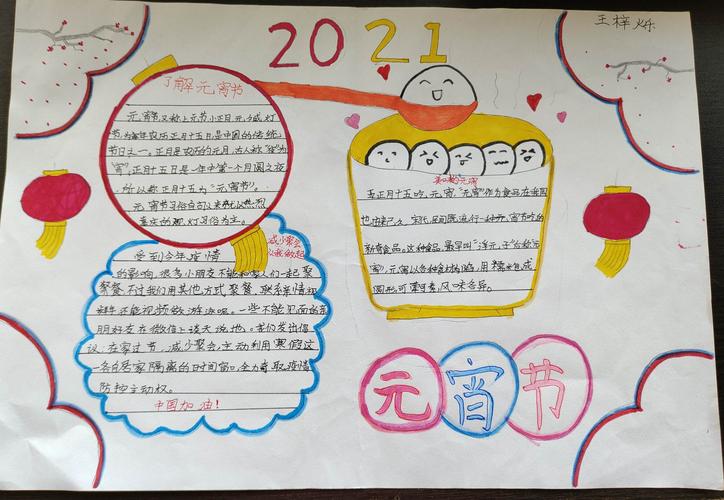 2021
王梓烁
了解元宵节
元宵节又称上元节小正月元夕或灯
节为每年农历正月十五日是中国的传统
节日之一。正月是农历的元月,古人称"夜"为
"宵",正月十五日是一年中第一个月圆之夜
所以称正月十五为"元宵节"。
元宵节习俗自古以来就以热烈
喜庆的观灯习俗为主。
减少聚会
从我做起
受到今年疫情
的影响,很多小朋友不能和家人们一起聚
餐不过我们用其他方式聚餐,联系亲情
还能视频做游戏呢。一些不能见面的亲
朋好友在微信上谈天说地。我们发出倡
议:在家过节,减少聚会,主动利用寒假这
一各居家隔离的日时间窗,全力着取疫情
防控主动权。
中国加油!
美味的元宵
正月十五吃元宵,"元宵"作为食品在我国
也由来已久,宋代,民间既流行一种元宵节吃的
新奇食品。这种食品,最早叫"浮元子"后称"元
宵",元宵以各种材料为馅,用糯米包成
圆形,可荤可素,风味各异。
元宵节